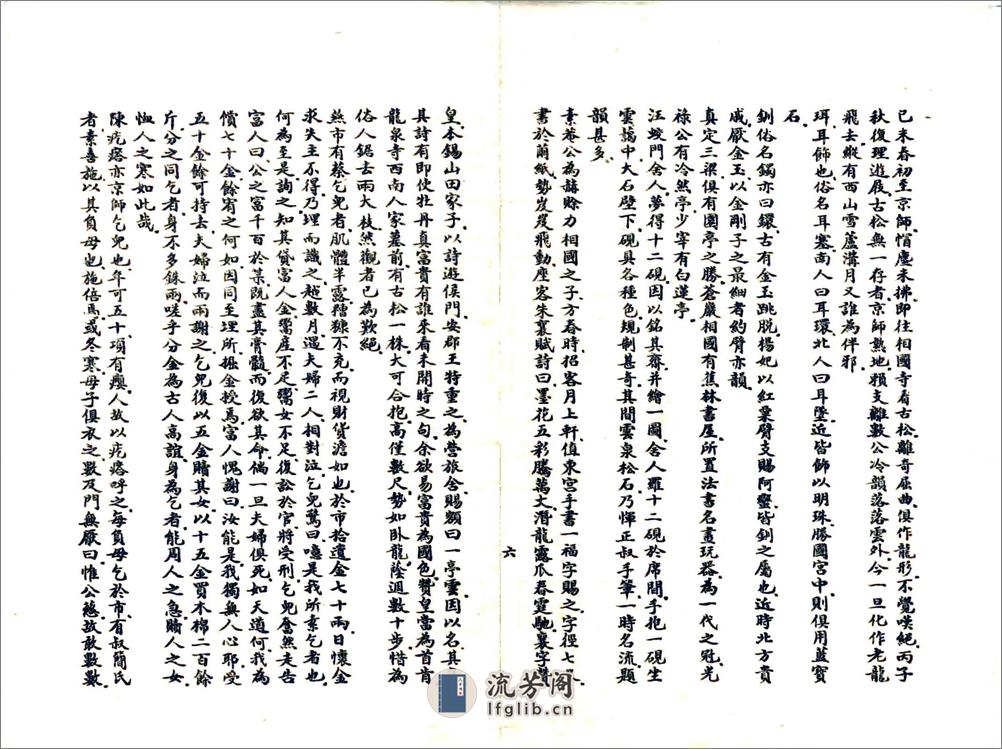 已未春初至京師惜塵未拂即往相國寺看古松離奇屈曲俱作龍形不覺嘆絕丙子
秋復理遊屐古松無一存者京師熱地賴支離數公冷韻落落雲外今一旦化作老龍
飛去縱有西山雪蘆溝月又誰為伴邪
珥耳飾也俗名耳塞南人曰耳環北人曰耳墜近皆飾以明珠勝國宮中則俱用藍寶
石
釧俗名鐲亦曰鐶古有金玉跳脫揚妃以紅粟臂支賜阿蠻皆釧之屬也近時北方貴
戚厭金玉以金剛子之最細者約臂亦韻
真定三梁俱有園亭之勝蒼巖相國有蕉林書屋所置法書名畫玩器為一代之冠光
祿公有冷然亭少宰有白蓮亭
汪蛟門舍人夢得十二硯因以銘其齋并繪一圖舍人羅十二硯於席間手抱一硯坐
雲藹中大石壁下硯具各種色規制甚奇其間雲泉松石乃惲正叔手筆一時名流題
韻甚多
素菴公為赫赊力相國之子方春時招客月上軒值東宮手書一福字賜之字徑七八
書於蘭紙勢岌岌飛動座客朱襄賦詩曰墨花五彩騰萬丈潛龍露爪春霆馳襄字贊
六
皇本錫山田家子以詩遊侯門安郡王特重之為營旅舍賜額曰一亭雲因以名其
其詩有即使牡丹真富貴有誰來看未開時之句余欲易富貴為國色贊皇當為首肯
龍泉寺西南人家墓前有古松一株大可合抱高僅數尺勢如卧龍蔭週數十步惜為
俗人鋸去兩大枝然觀者已為歎絕
燕市有蔡乞兒者肌體半露糟糠不充而視財貨澹如也於市拾遺金七十兩日懷金
求失主不得乃埋而識之越數月遇夫婦二人相對泣乞兒驚曰噫是我所素乞者也
何為至是詢之知其貸富人金鬻產不足鬻女不足復訟於官將受刑乞兒奮然走告
富人曰公之富千百於某既盡其膏髓而復欲其命倘一旦夫婦俱死如天道何我為
償七十金餘宥之何如因同至埋所掘金授焉富人愧謝曰汝能是我獨無人心耶受
五十金餘可持去夫婦泣而兩謝之乞兒復以五金贖其女以十五金買木棉二百餘
斤分之同乞者身不多銖兩嗟乎分金為古人高誼身為乞者能周人之急贖人之女
恤人之寒如此哉
陳疙瘩亦京師乞兒也年可五十項有癭人故以疙瘩呼之每負母乞於市有叔簡氏
者素喜施以其負母也施倍焉或冬寒母子俱衣之數及門無厭曰惟公慈故敢數數
流芳阁
lfglib.cn